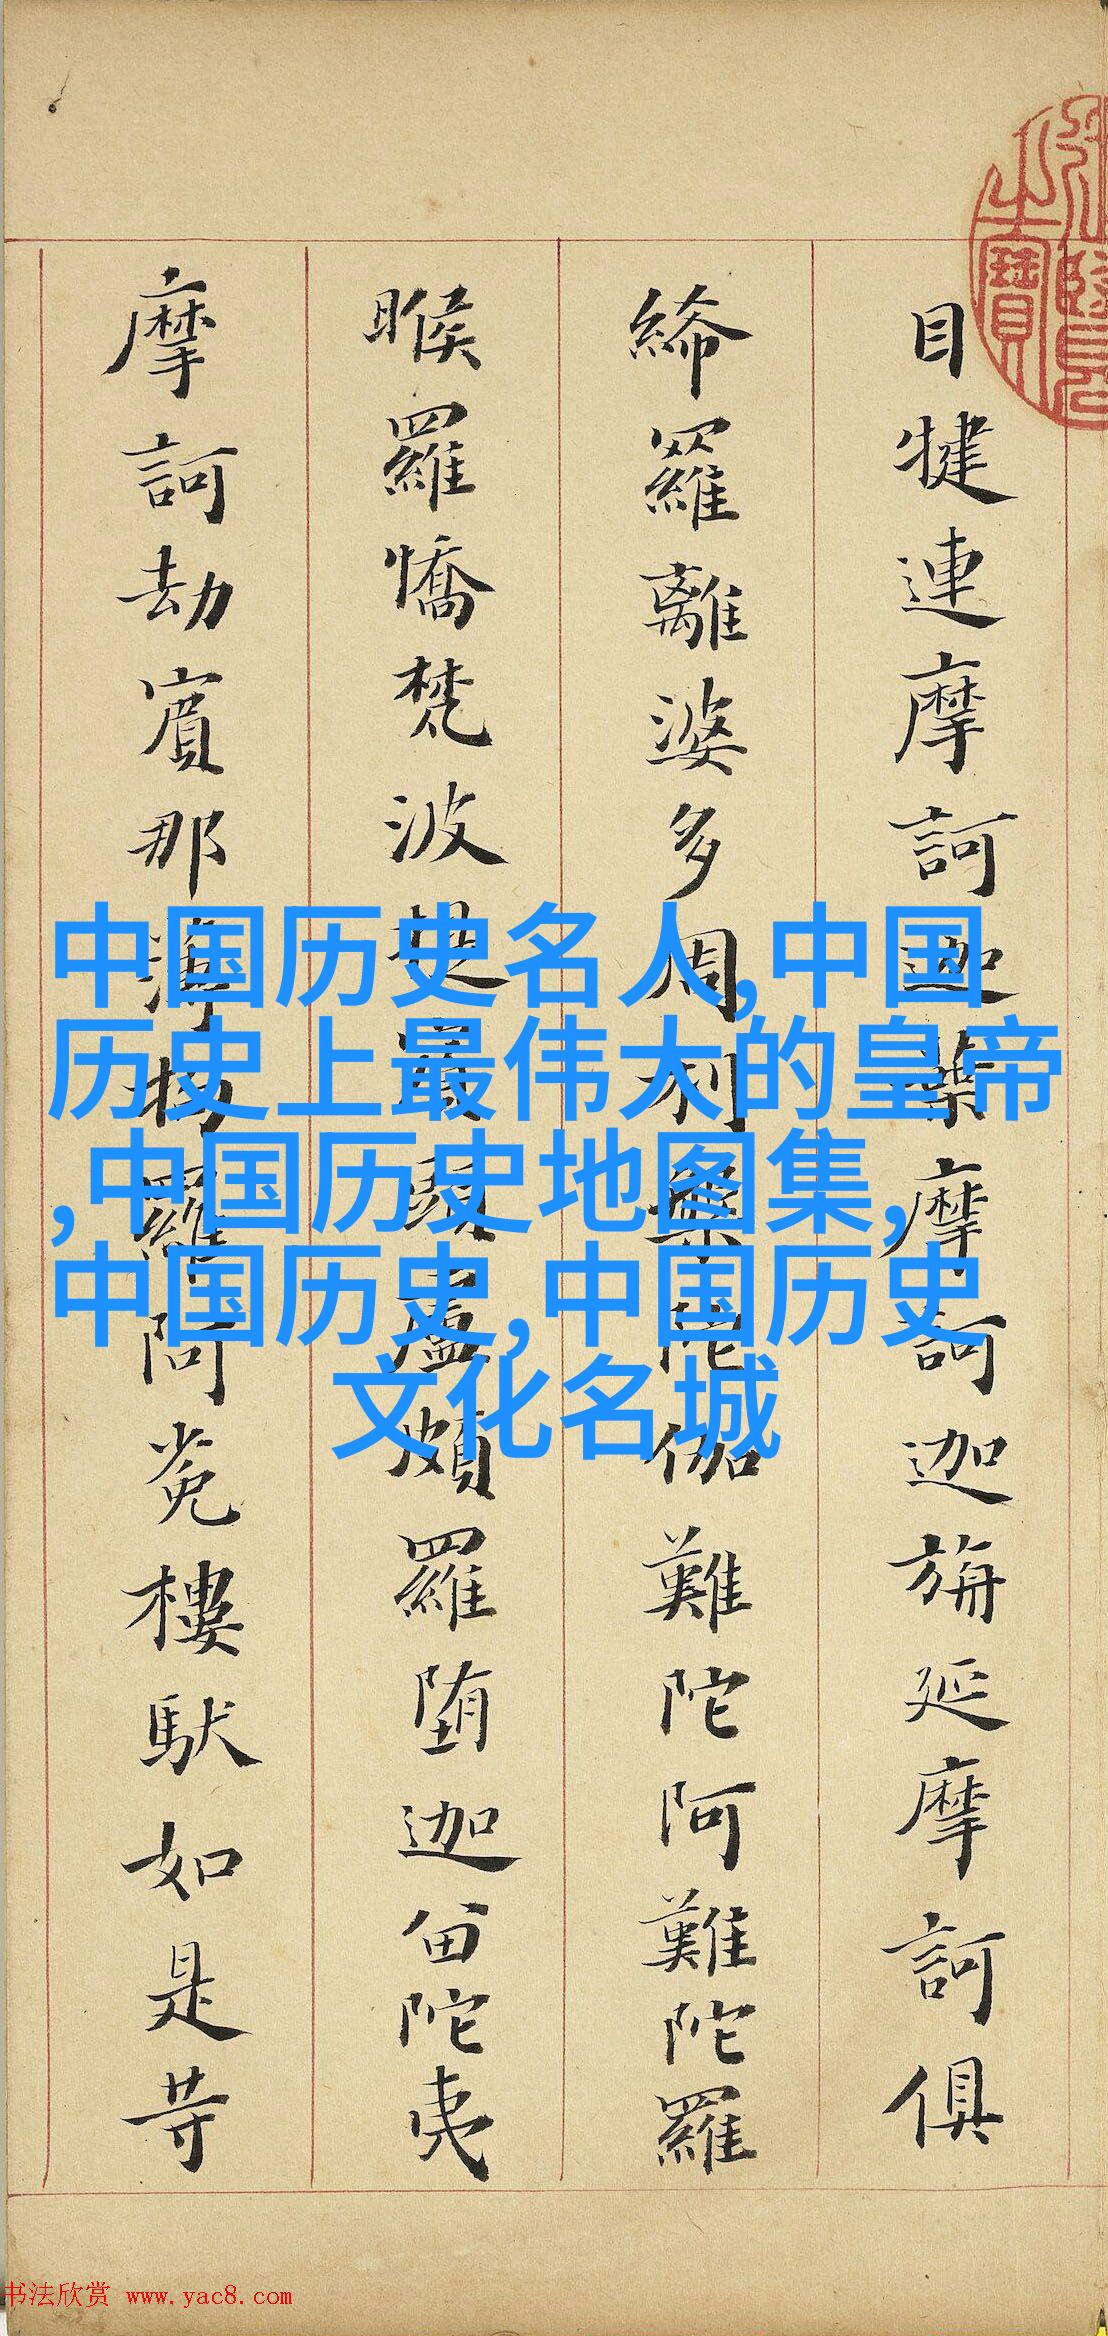 目犍連摩訶迦葉摩訶迦旃延摩訶俱
絺羅離婆多周利槃陀伽難陀阿難陀羅
睺羅憍梵波提賓頭盧頗羅堕迦留陀夷
摩訶劫賓那薄拘羅阿㝹樓馱如是等
中国历史名人,中国
历史上最伟大的皇帝
,中国历史地图集,
中国历史,中国历史
文化名城
书法欣赏 www.yac8.com